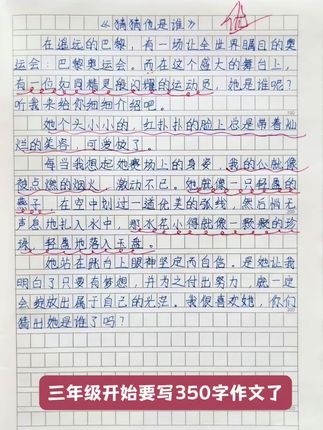 《猜猜他是谁》
优
在遥远的巴黎，有一场让全世界瞩目的奥
运会：巴黎奥运会。而在这个盛大的舞台上，
有一位如同精灵般闪耀的运动员，她是谁呢？
听我来给你细细介绍吧。
她个头小小的，红扑扑的脸上总是带着灿
烂的笑容，可爱极了。
每当我想起她赛场上的身姿，我的心就像
被点燃的烟火，激动不已。她就像一只轻盈的
燕子，在空中划过一道优美的弧线，然后悄无
声息地扎入水中，那水花小得就像一颗颗的珍
珠，轻盈地落入玉盘。
她站在跳台上眼神坚定而自信。是她让我
明白了只要有梦想，并为之付出努力，就一定
会绽放出属于自己的光芒。我很喜欢她，你们
猜出她是谁了吗？
三年级开始要写350字作文了